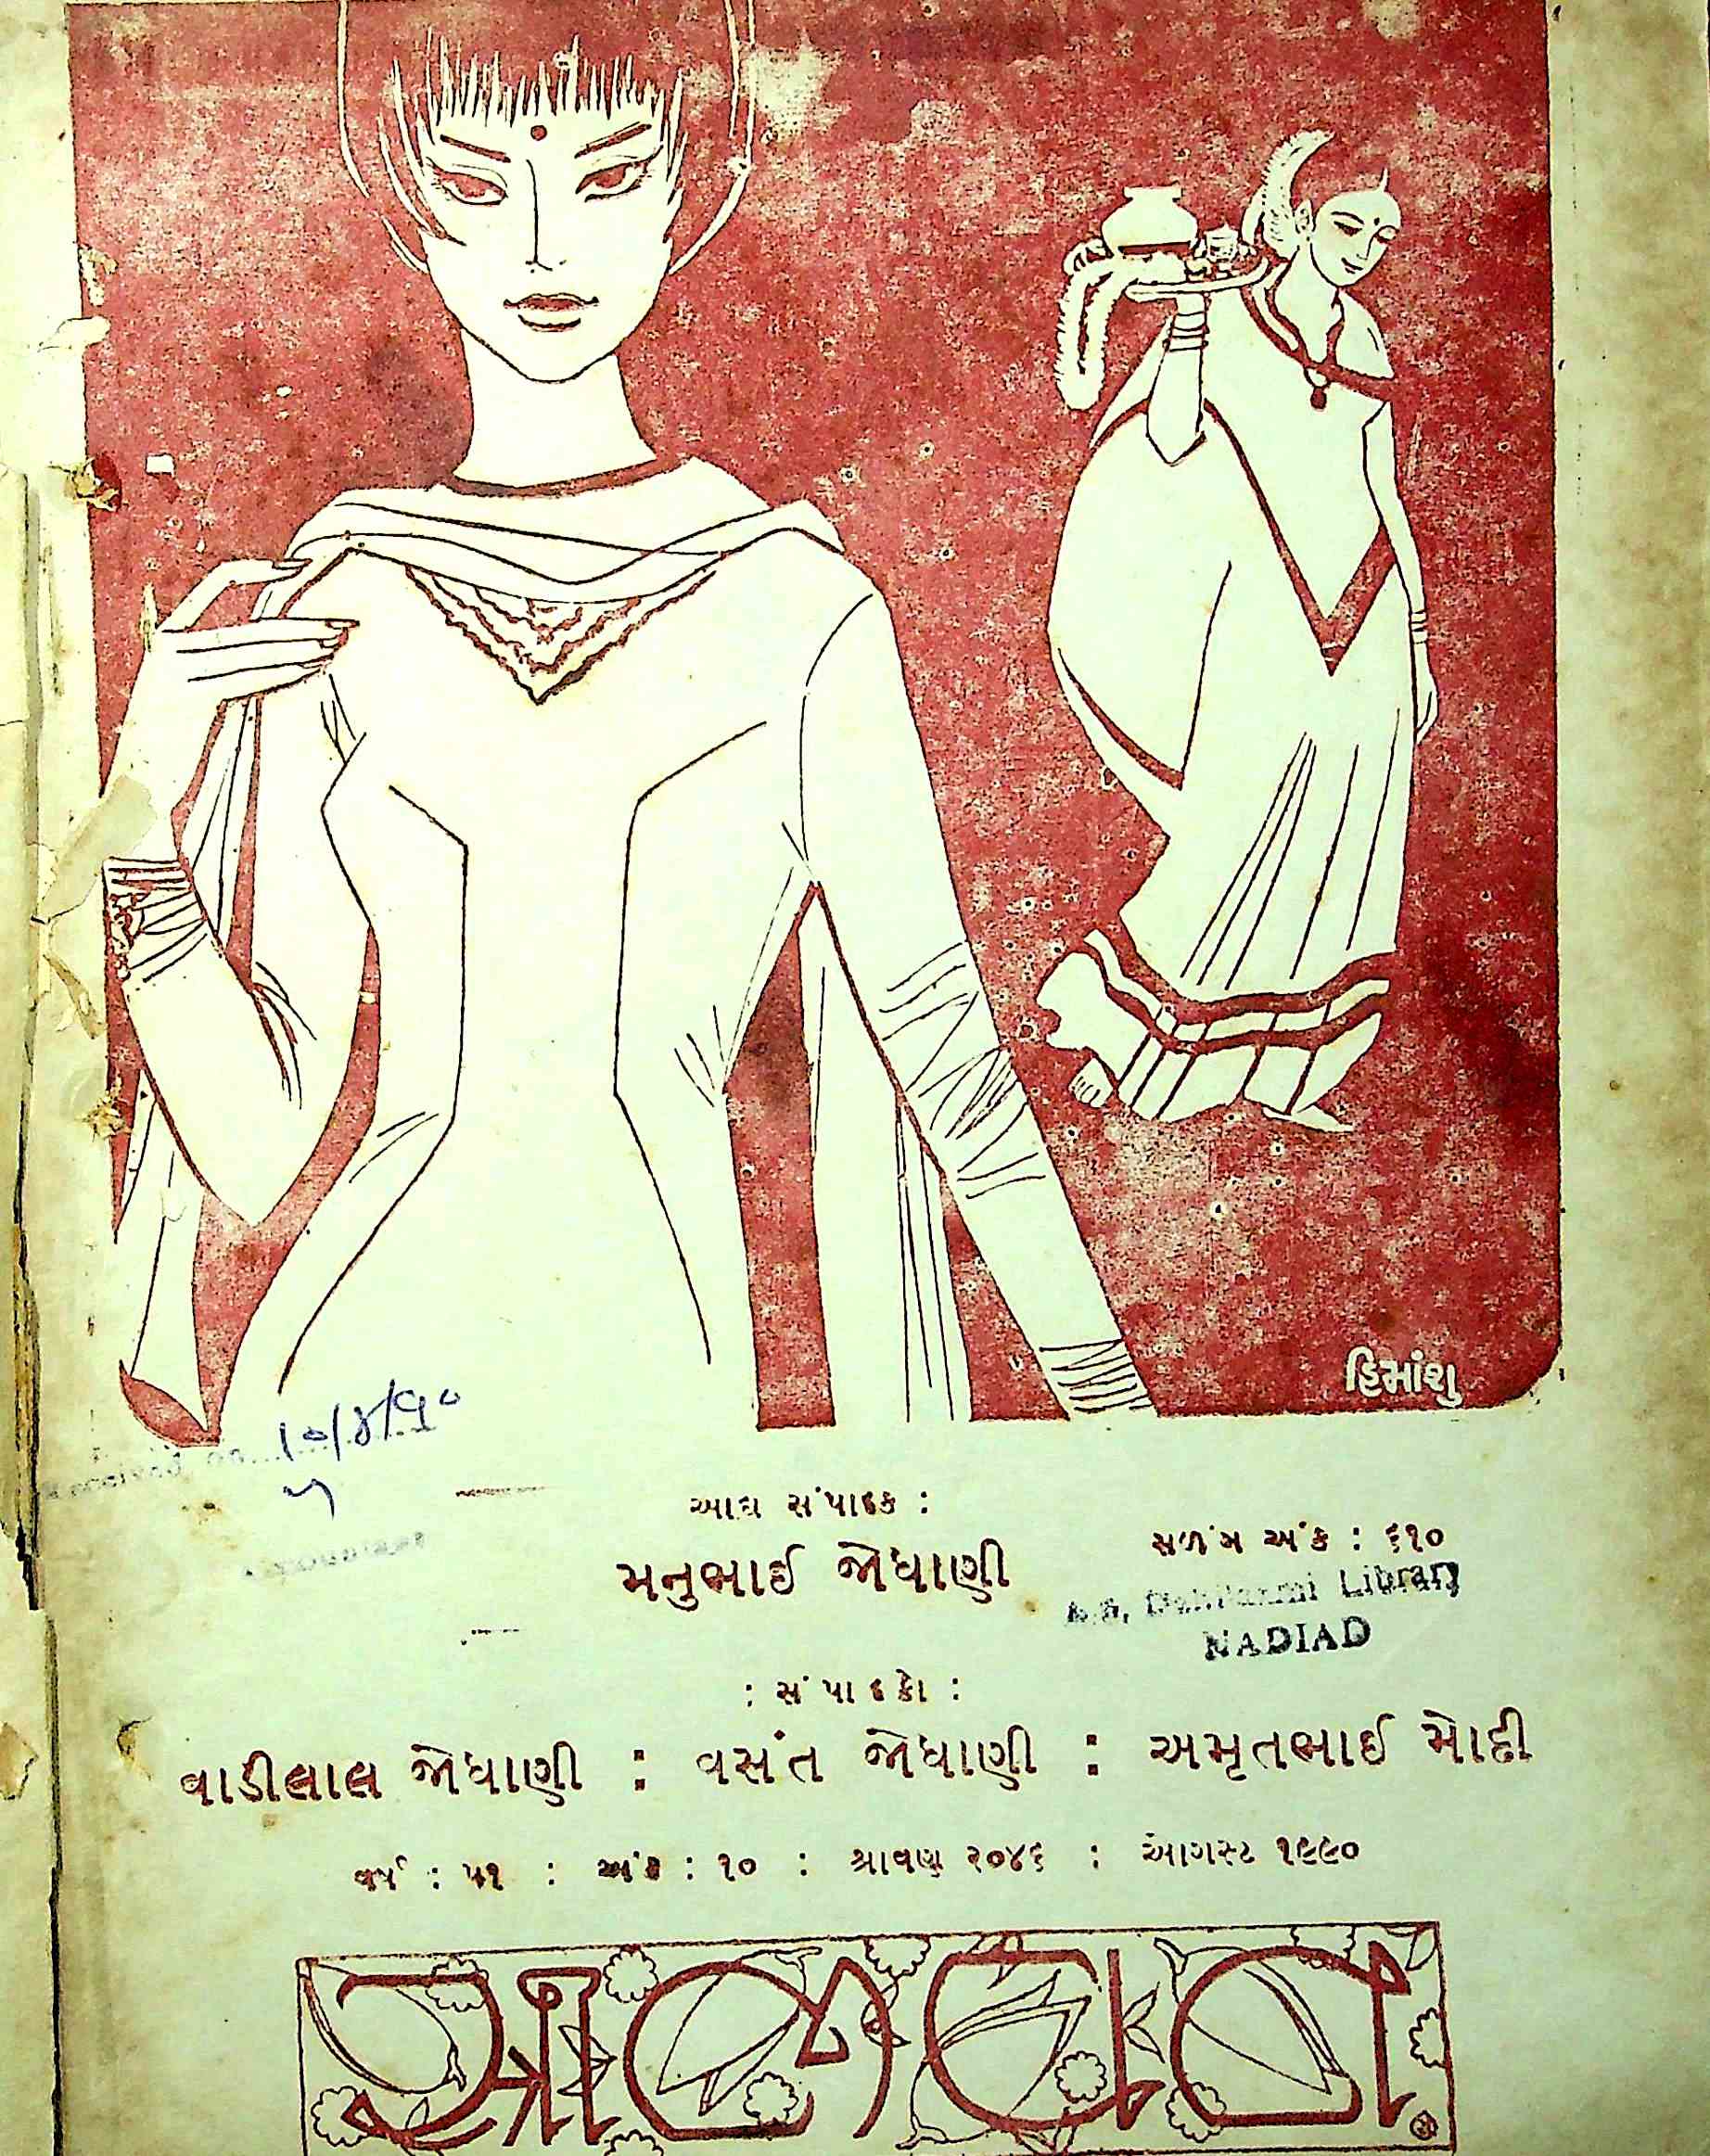 હિમાંશુ
આદ્ય સંપાદક :
મનુભાઈ જોધાણી
સળંગ અંક : ૬૧૦
Library
NADIAD
: સંપાદકો :
વાડીલાલ જોધાણી : વસંત જોધાણી : અમૃતભાઈ મોદી
વર્ષ : ૫૧ : અંક : ૧૦ : શ્રાવણ ૨૦૪૬ : ઑગસ્ટ ૧૯૯૦
સ્ત્રીજીવન